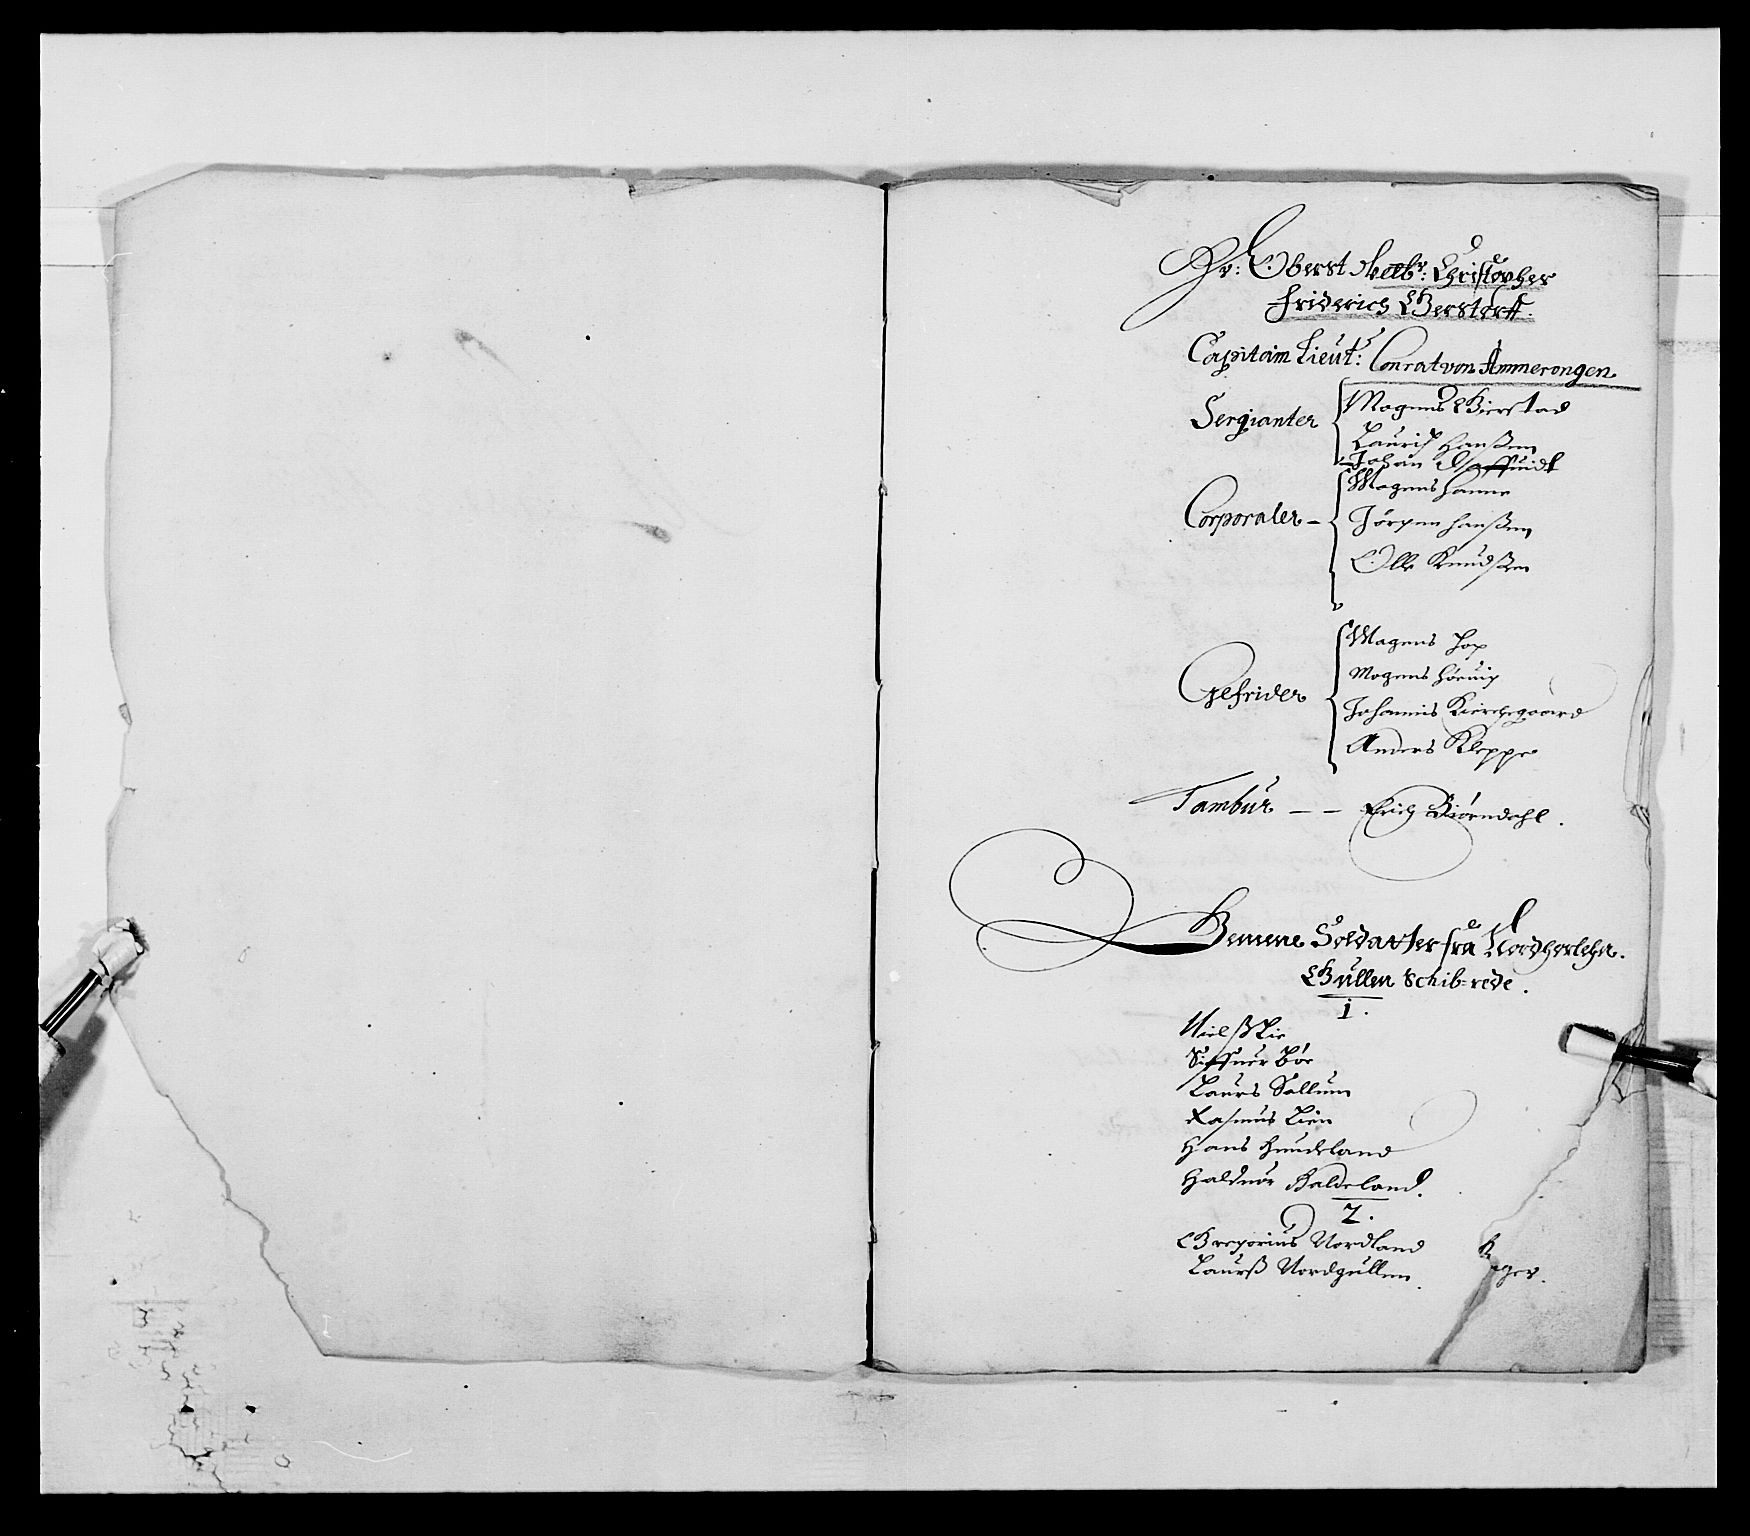 Hr: Oberst Velb: Christopher
Friderich Gerstorff.
Capitain Lieut: Conrat von Ammerongen
Sergianter
Mogens Gierstad
Lauris Hanßen
Johan
Corporaler –
Mogens Hanne
Jörgen Hanßen
Olle Knudßen
Gefrider
Magens Hop
Mogens
Johannis Kierchegaard
Anders Kleppe
Tambur – – Erich Biörndahl.
Gemene Soldatter fra Nordherlehn.
Gullen Schib=rede.
1.
Nielß Lie
Böe
Laurs Sollum
Rasmus Lien
Hans Hundeland
Halduor Haldeland.
2.
Gregorius Nordland
Laurß Nordgullen.